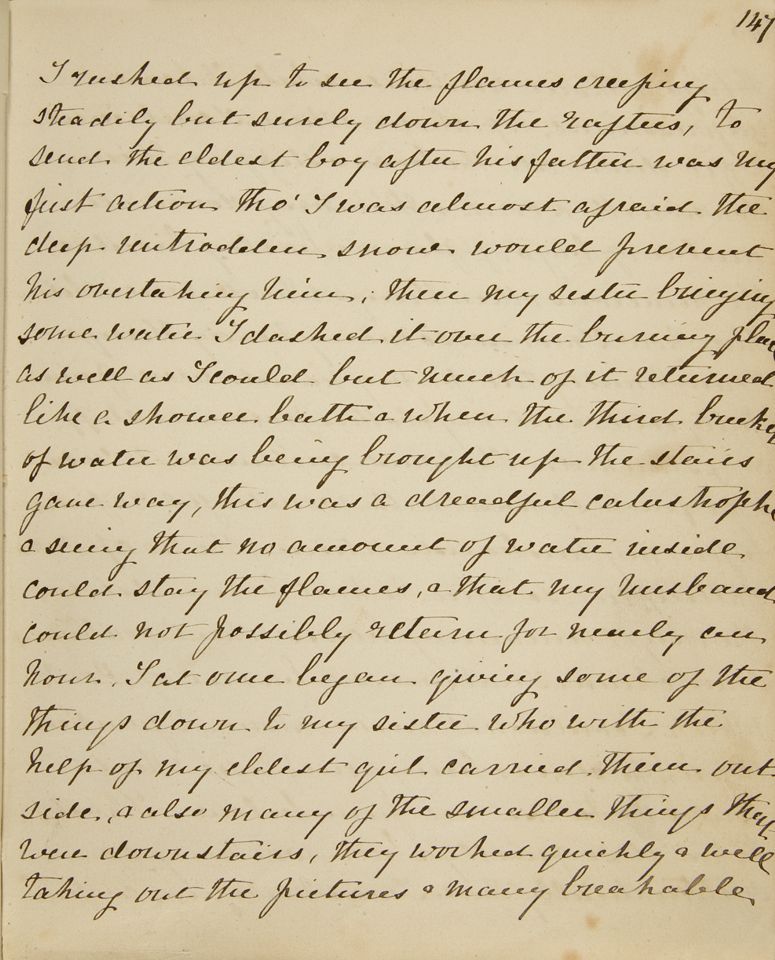 147
I rushed up to see the flames creeping
steadily but surely down the rafters, to
send the eldest boy after his father was my
first action tho' I was almost afraid the
deep untrodden snow would prevent
his overtaking him, then my sister bringing
some water I dashed it over the burning place
as well as I could but much of it returned
like a shower bath & when the third bucket
of water was being brought up the stairs
gave way, this was a dreadful catastrophe
& seeing that no amount of water inside
could stay the flames, & that my husband
could not possibly return for nearly an
hour, I at once began giving some of the
things down to my sister who with the
help of my eldest girl carried them out
side, & also many of the smaller things that
were downstairs, they worked quickly & well
taking out the pictures & many breakable